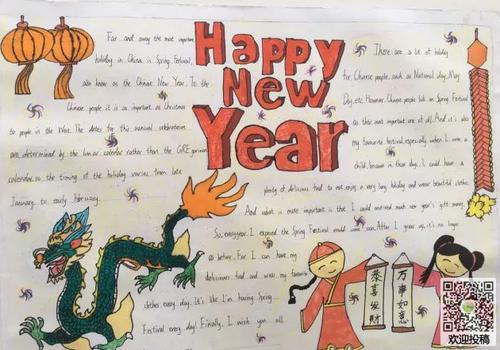 Happy
New
Year
Far and away the most important
holiday in China is Spring Festival,
also know as the Chinese New Year. To the
Chinese people it is as important as Christmas
to people in the West. The dates for this annual celebration
are determined by the lunar calendar rather than the
calendar, so the timing of the holiday varies from late
January to early February.
There are a lot of holiday
for Chinese people, such as National day, May
Day, etc. However, Chinese people look on Spring Festival
as their most important one of all. And it's also
my favourite festival, especially when I were a
child, because in those days, I could have a
plenty of delicious food to eat, enjoy a very long holiday and wear beautiful clothes.
And what is more important is that I could received much new year's gift money.
So, everyyear, I expected the Spring Festival would come soon. After I grow up, it's no longer
so better. For I can have my
delicious food and wear my favourite
clothes every day. It's like I'm having Spring
Festival every day. Finally, I wish you all
恭喜發財
万事如意
欢迎投稿